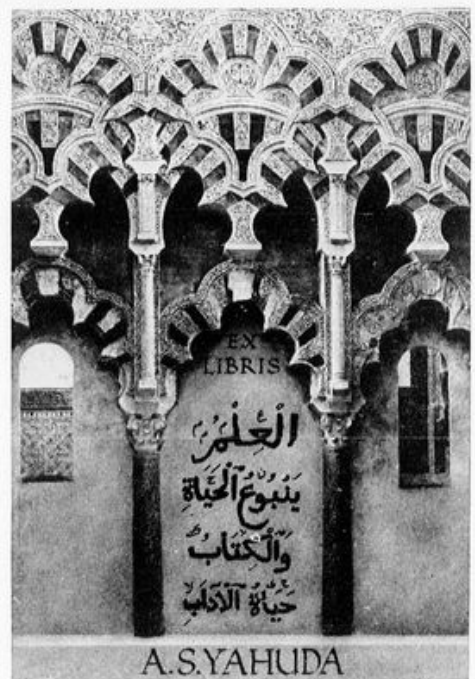 EX
LIBRIS
العِلْمُ
يَنْبُوعُ ٱلْحَيَاةِ
وَٱلْكِتَابُ
حَيَاةُ ٱلْآدَابِ
A.S.YAHUDA